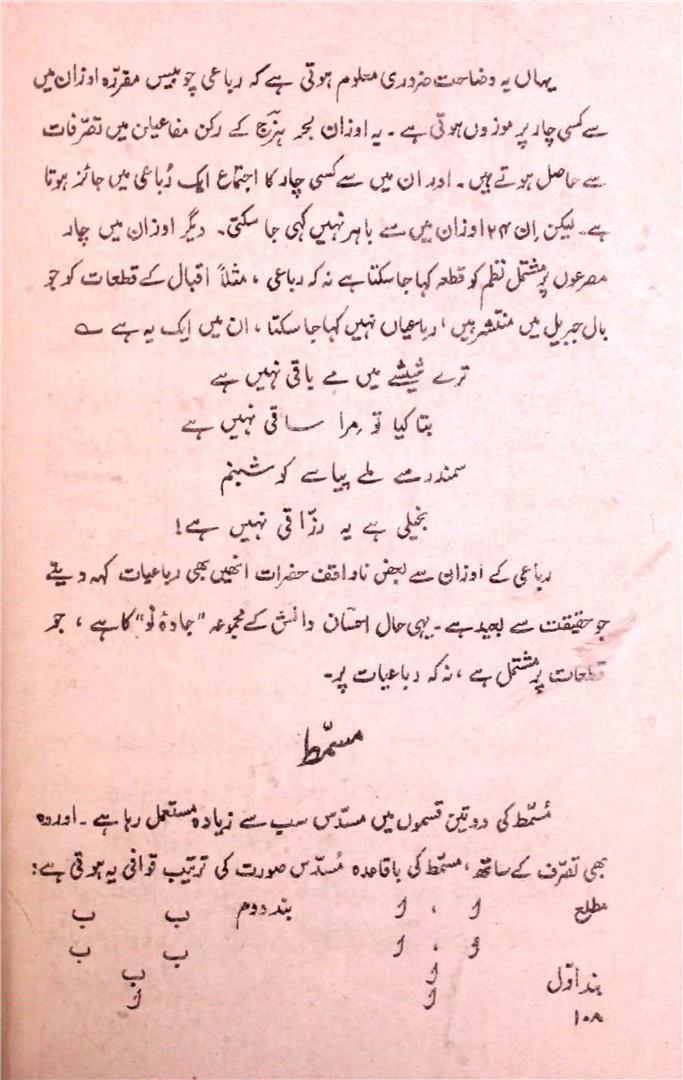 یہاں یہ وضاحت ضروری معلوم ہوتی ہے کہ رباعی چوبیس مقررہ اوزان میں
سے کسی چار پر موزوں ہوتی ہے۔ یہ اوزان بحر ہزج کے رکن مفاعیلن میں تصرّفات
سے حاصل ہوتے ہیں۔ اور ان میں سے کسی چار کا اجتماع ایک رُباعی میں جائز ہوتا
ہے۔ لیکن اِن ۲۴ اوزان میں سے باہر نہیں کہی جا سکتی۔ دیگر اوزان میں چار
مصرعوں پر مشتمل نظم کو قطعہ کہا جا سکتا ہے نہ کہ رباعی، مثلاً اقبال کے قطعات کو جو
بال جبریل میں منتشر ہیں، رباعیاں نہیں کہا جا سکتا، ان میں ایک یہ ہے ؎
ترے شیشے میں مے باقی نہیں ہے
بتا کیا تو مِرا ساقی نہیں ہے
سمندر سے ملے پیاسے کو شبنم
بخیلی ہے یہ رزّاقی نہیں ہے!
رباعی کے اوزان سے بعض ناواقف حضرات انھیں بھی رباعیات کہہ دیتے
جو حقیقت سے بعید ہے۔ یہی حال احسان دانش کے مجموعہ "جادۂ نَو" کا ہے، جو
قطعات پر مشتمل ہے، نہ کہ رباعیات پر۔
مسمّط
مُسمّط کی دو تین قسموں میں مسدّس سب سے زیادہ مستعمل رہا ہے۔ اور وہ
بھی تصرّف کے ساتھ، مسمّط کی باقاعدہ مُسدّس صورت کی ترتیب قوافی یہ ہوتی ہے:
مطلع ا ، ا بند دوم ب ب
ا ، ا ب ب
بند اوّل ا ب
ا ا
۱۰۸